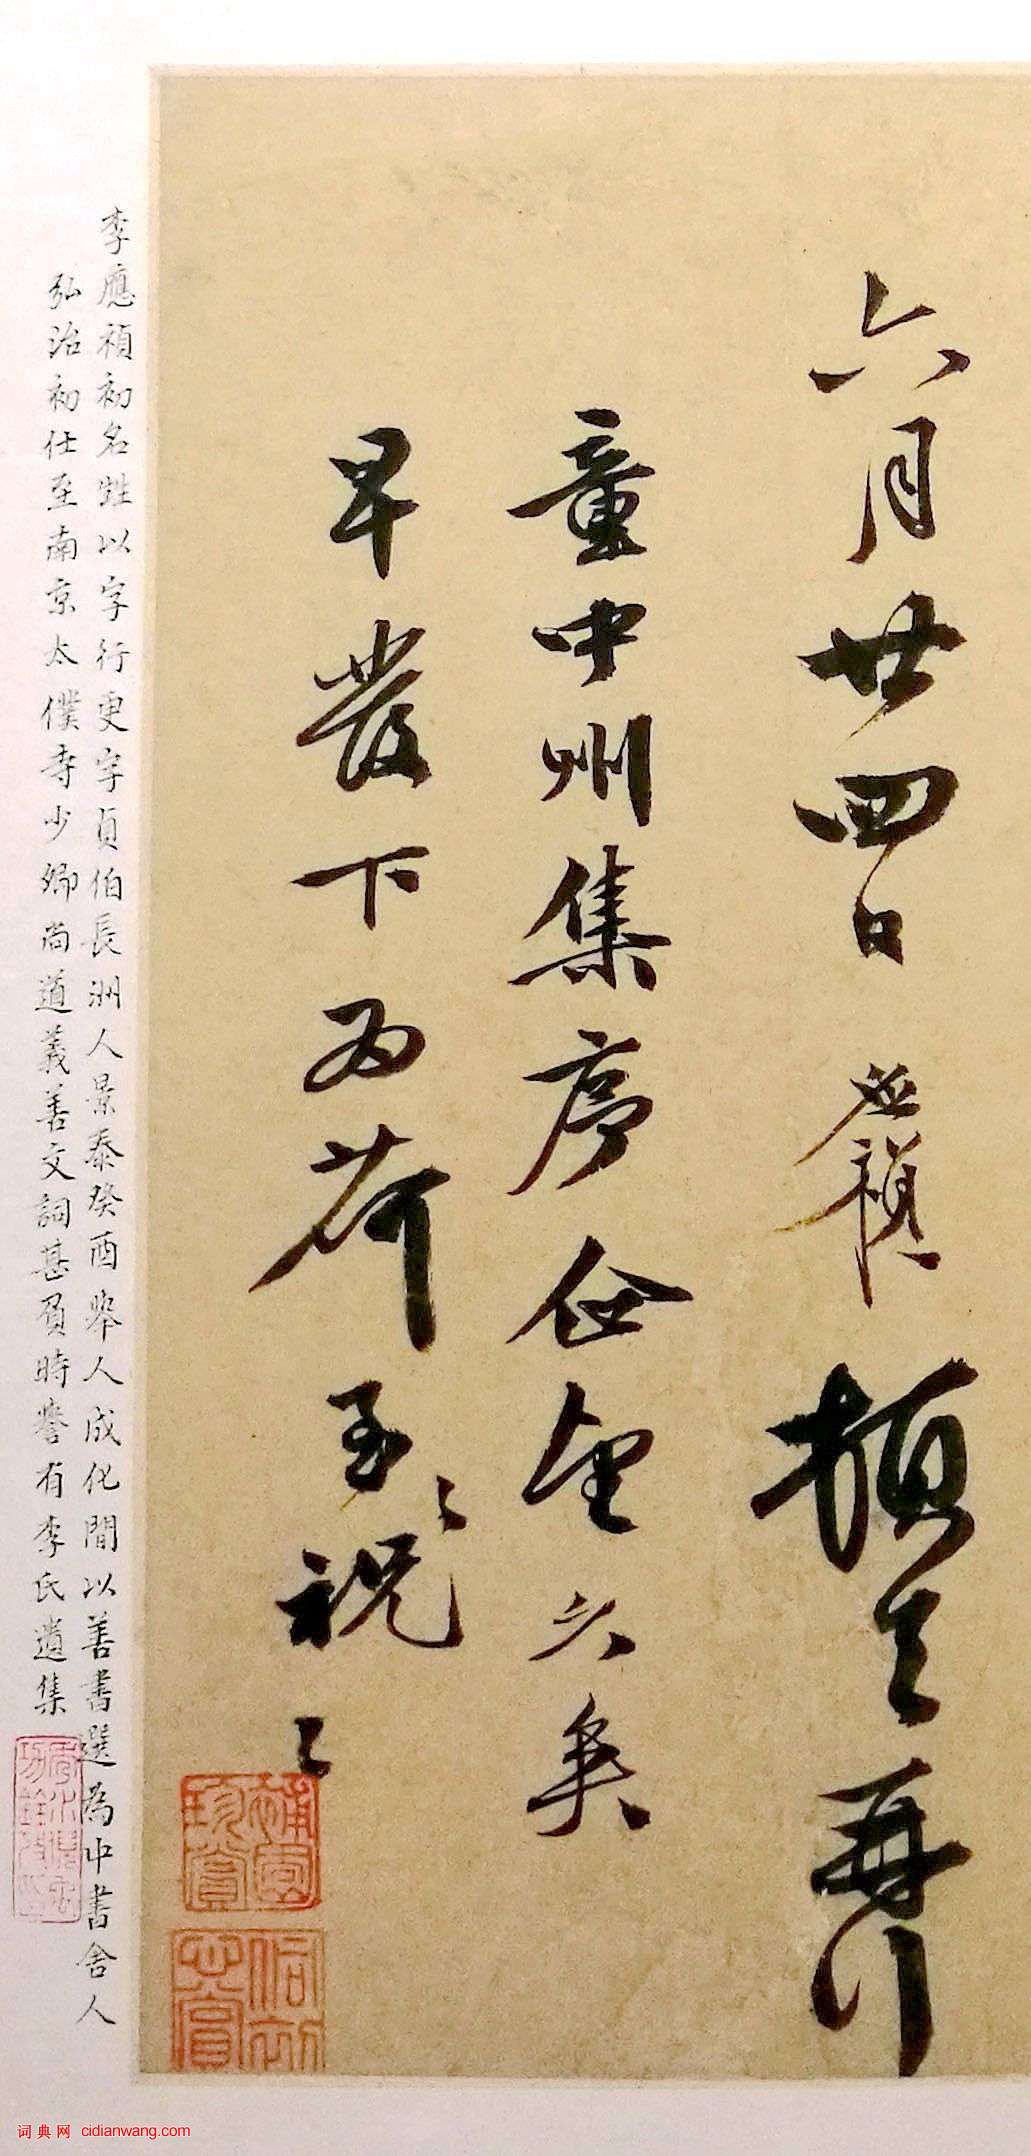 六月廿四日 應禎 頓首再拜
童中州集序
早發下為荷至〻祝〻
李應禎初名甡以字行更字貞伯長洲人景泰癸酉舉人成化間以善書選為中書舍人
弘治初仕至南京太僕寺少卿尚道義善文詞甚負時譽有李氏遺集
補園珍賞
伯初心賞
词典网 cidianwang.com